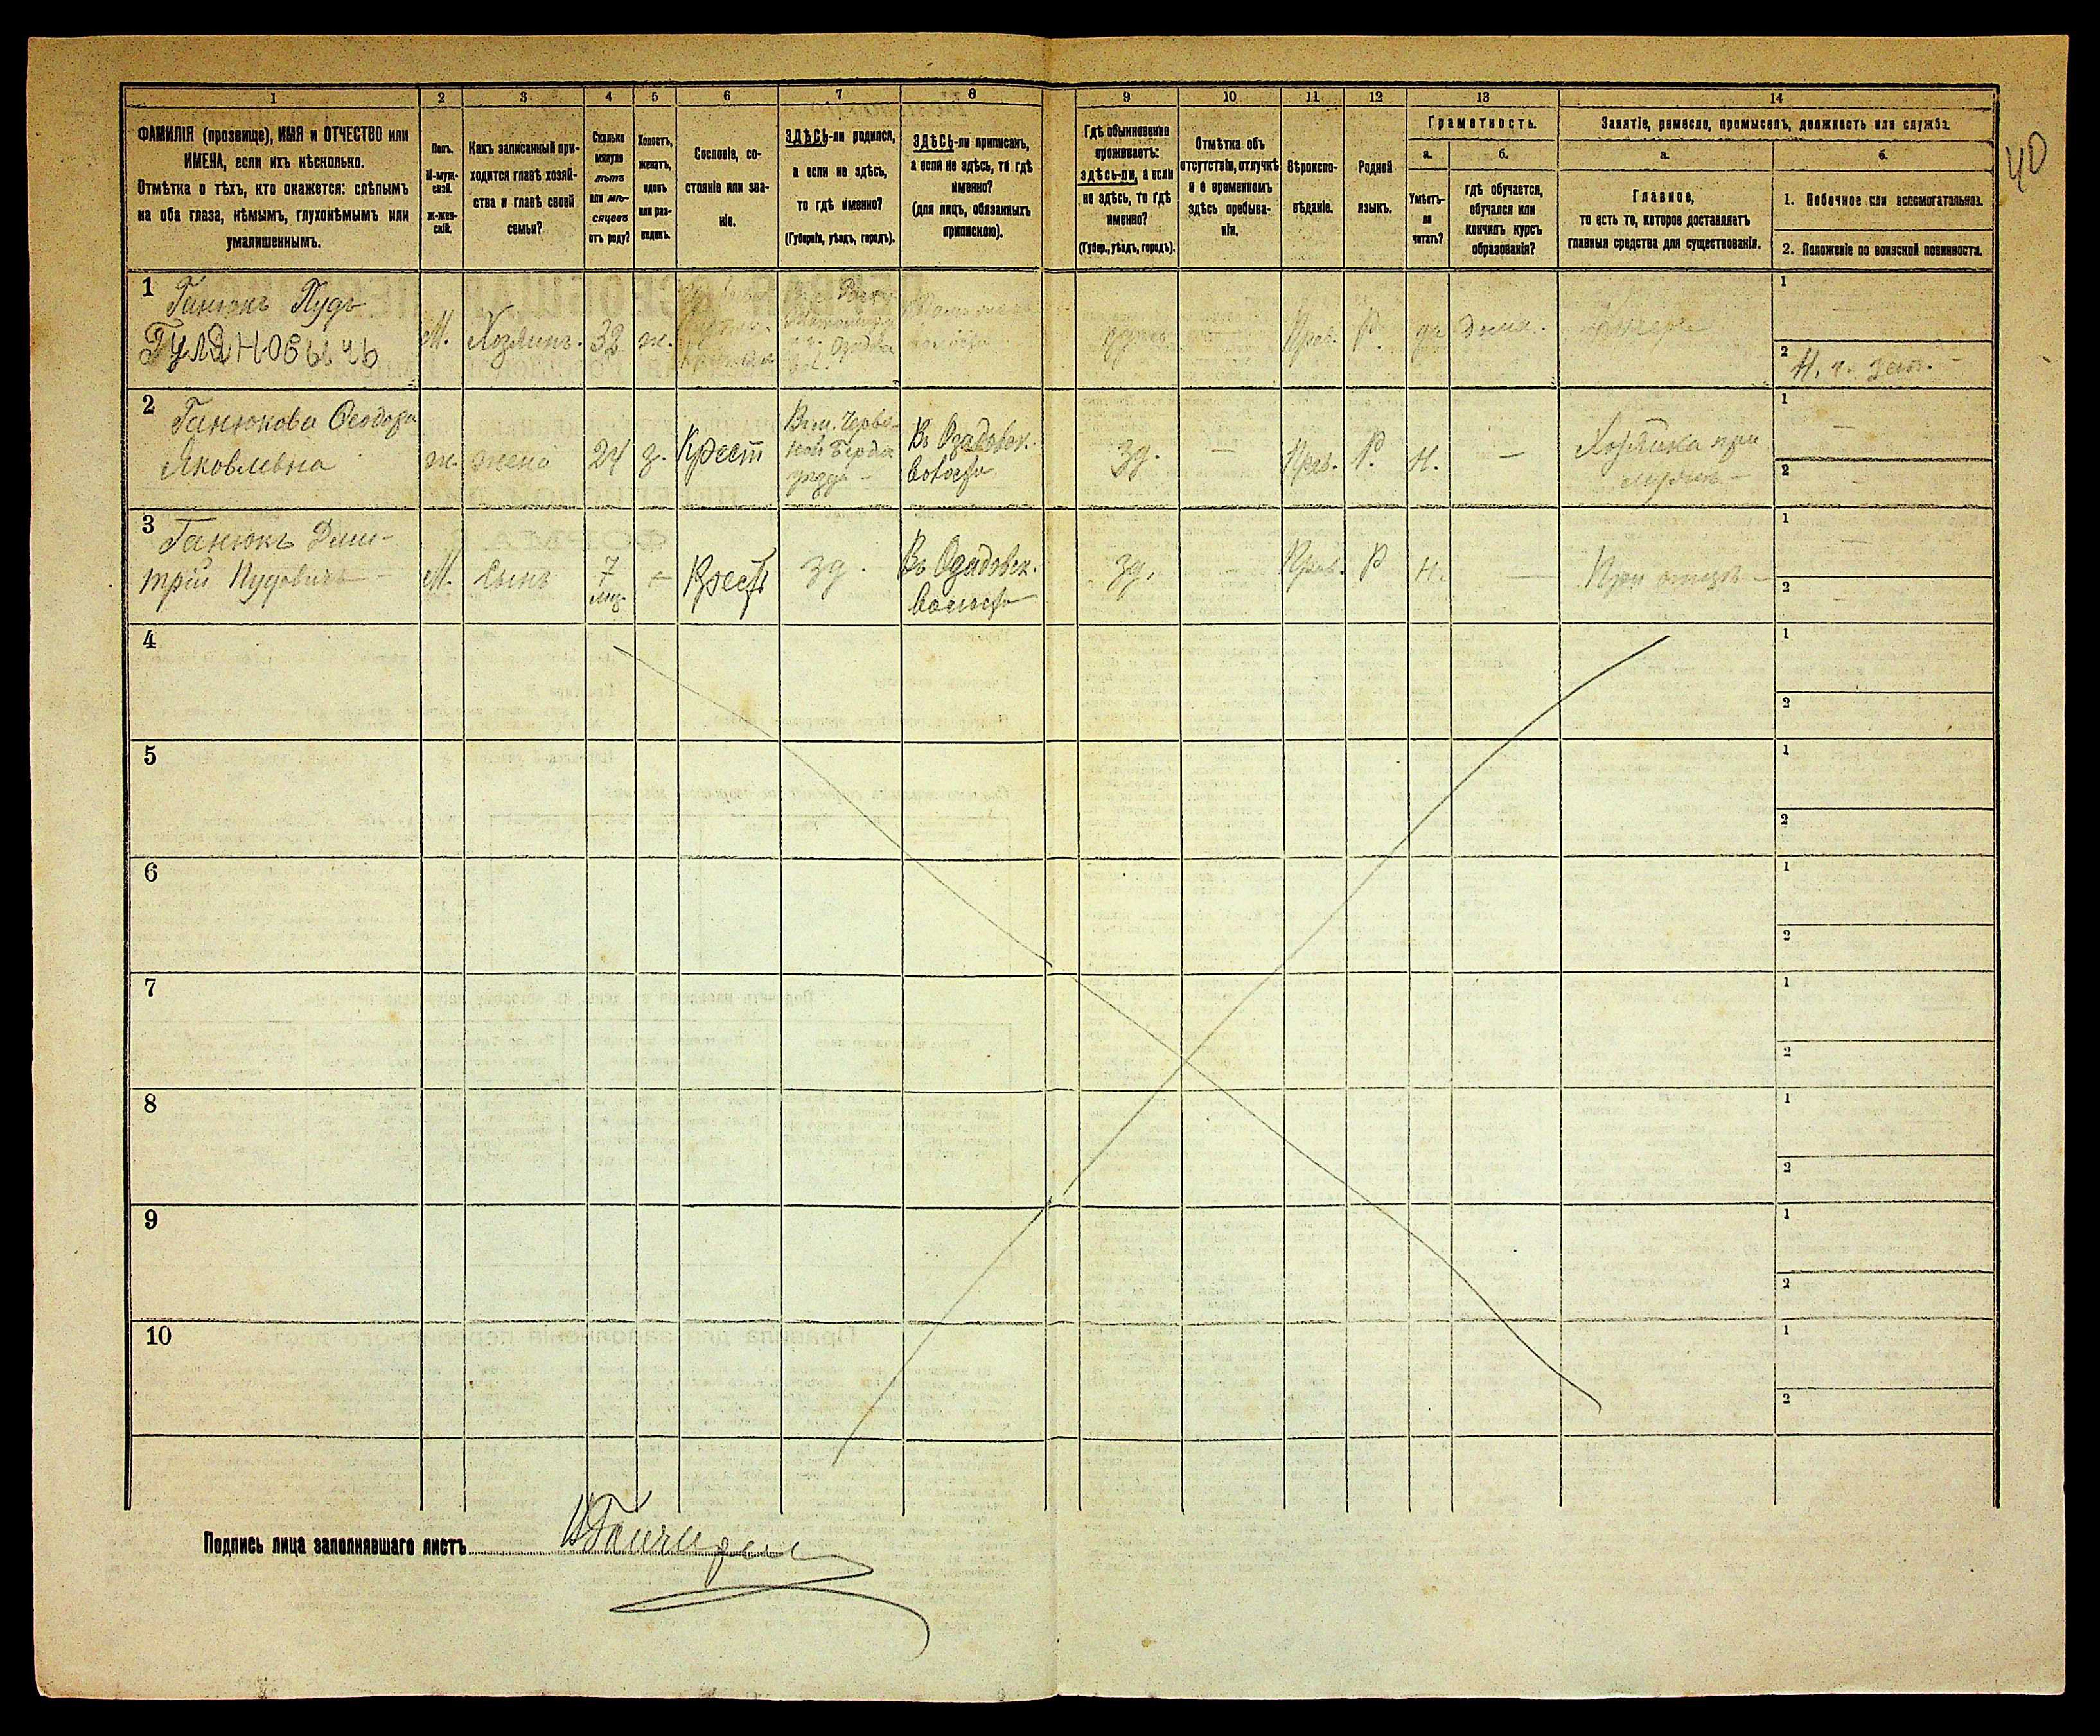 40
1 2 3 4 5 6 7 8 9 10 11 12 13 14
ФАМИЛІЯ (прозвище), ИМЯ и ОТЧЕСТВО или
ИМЕНА, если ихъ нѣсколько.
Отмѣтка о тѣхъ, кто окажется: слѣпымъ
на оба глаза, нѣмымъ, глухонѣмымъ или
умалишеннымъ.
Полъ.
М-муж-
ской.
ж-жен-
скій.
Какъ записанный при-
ходится главѣ хозяй-
ства и главѣ своей
семьи?
Сколько
минуло
лѣтъ
или мѣ-
сяцевъ
отъ роду?
Холостъ,
женатъ,
вдовъ
или раз-
веденъ.
Сословіе, со-
стояніе или зва-
ніе.
ЗДѢСЬ-ли родился,
а если не здѣсь,
то гдѣ именно?
(Губернія, уѣздъ, городъ).
ЗДѢСЬ-ли приписанъ,
а если не здѣсь, то гдѣ
именно?
(для лицъ, обязанныхъ
припискою).
Гдѣ обыкновенно
проживаетъ:
здѣсь-ли, а если
не здѣсь, то гдѣ
именно?
(Губер., уѣздъ, городъ).
Отмѣтка объ
отсутствіи, отлучкѣ
и о временномъ
здѣсь пребыва-
ніи.
Вѣроиспо-
вѣданіе.
Родной
языкъ.
Грамотность.
а.
Умѣетъ-
ли
читать?
б.
гдѣ обучается,
обучался или
кончилъ курсъ
образованія?
Занятіе, ремесло, промыселъ, должность или служба.
а.
Главное,
то есть то, которое доставляетъ
главныя средства для существованія.
б.
1. Побочное или вспомогательное.
2. Положеніе по воинской повинности.
1 Ганюкъ Пудъ
Гуляновычъ
М. Хозяинъ. 32 ж.
здѣсь — Прав. Р. да дома.
1 —
2 Н. ч. зап.
2 Ганюкова Ѳеодора
Яковлевна
ж. жена 24 з. Крест
Въ Озадовск.
волости
зд. — Прав. Р. н. — Хозяйка при
мужѣ —
1 —
2 —
3 Ганюкъ Дми-
трій Пудовичъ
М. Сынъ 7
мѣс.
— Крест зд.
Въ Озадовск.
волости
зд. — Прав. Р н. — При отцѣ —
1 —
2 —
4 1
2
5 1
2
6 1
2
7 1
2
8 1
2
9 1
2
10 1
2
Подпись лица заполнявшаго листъ